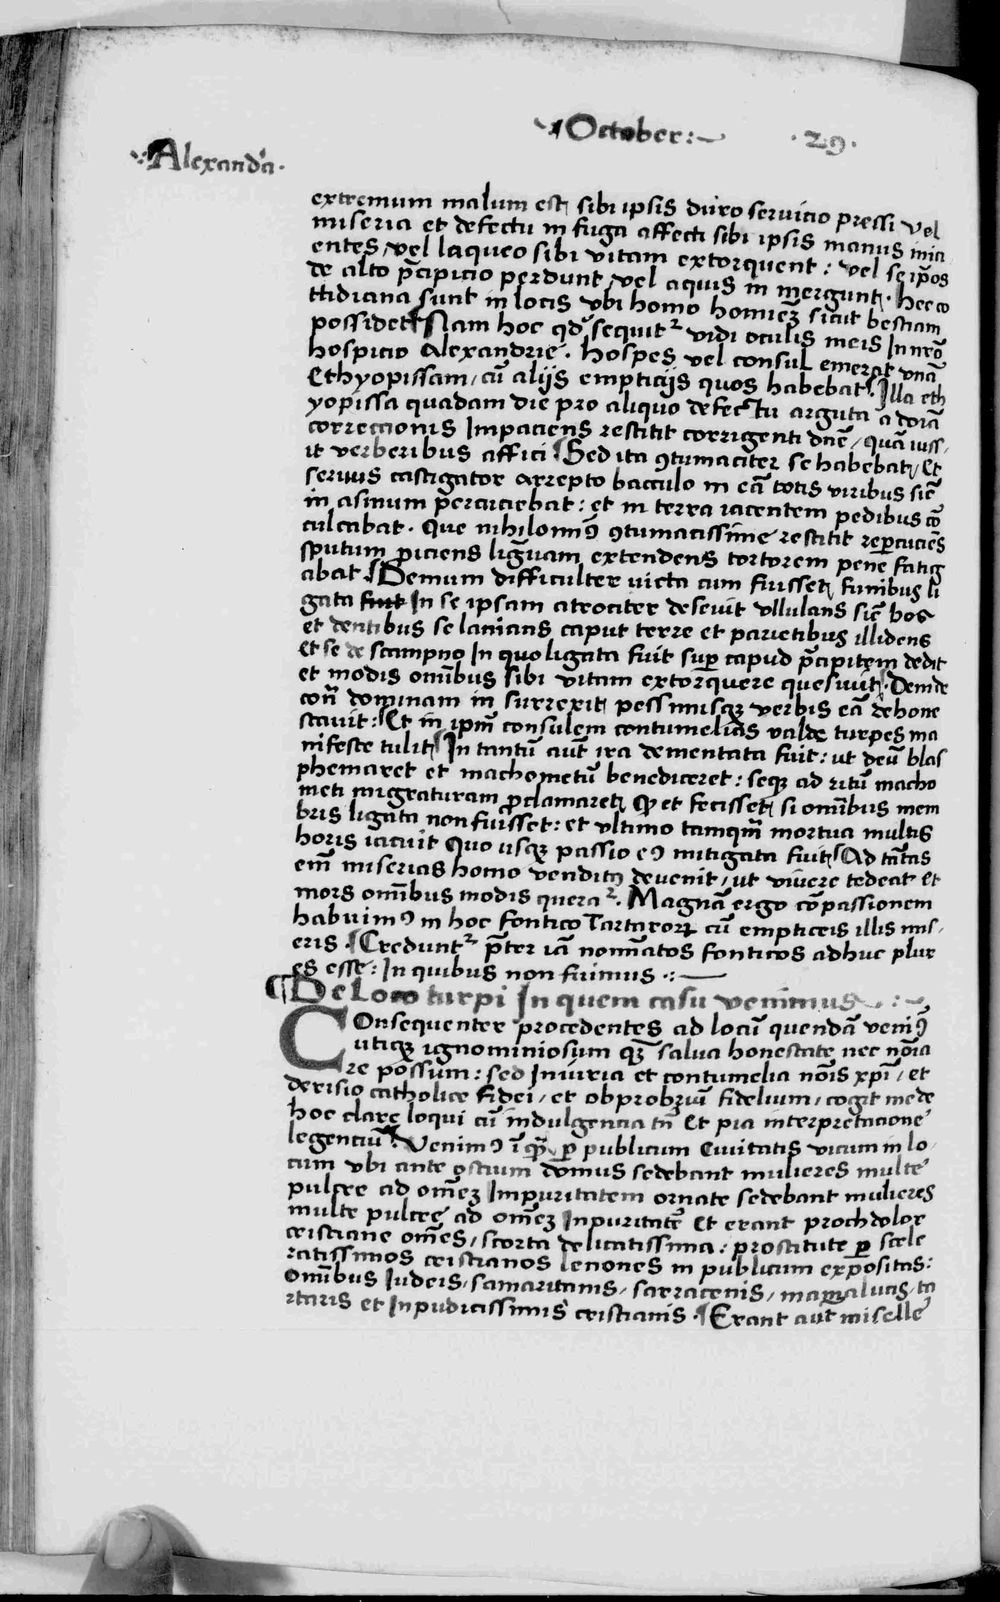 October :~ · 29 ·
Alexandᷓa ·
extremum malum est sibi ipsis duro servicio pressi vel
miseria et defectu in fuga affecti sibi ipsis manus inici
entes, vel laqueo sibi vitam extorquent : vel se ip̄os
de alto p̄cipicio perdunt, vel aquis in mergunt. Hec co
ttidiana sunt in locis vbi homo homiēz sicut bestiam
possidet ¶ Nam hoc qd̕ sequit᷑ vidi oculis meis In nr̄o
hospicio Alexandrie. hospes vel consul emerat vnā
Ethyopissam, cū alijs empticijs quos habebat. Illa eth
yopissa quadam die pro aliquo defectu arguta a dn̄a
correctionis Impaciens restitit corrigenti dn̄e, quā iuss
it verberibus affici ¶ Sed ita ꝯtumaciter se habebat, Et
servus castigator arrepto bacculo in eā totis viribus sic̄
in asinum percuciebat : et in terra iacentem pedibus cō
culcabat. Que nihilomin᷒ ꝯtumacissime restitit rep̄cuciēs
sputum p̄iciens lig̅uam extendens tortorem pene fatig
abat. ¶ Demum difficulter victa cum fuisset, funibus li
gata fuit In se ipsam atrociter deseuit vllulans sic̄ bos
et dentibus se lanians caput terre et parietibus illidens
Et se de scampno In quo ligata fuit sup̄ capud p̄cipitem dedit
et modis omībus sibi vitam extorquere quesiuit ¶ Deinde
con̄ dominam in surrexit, pessimisqꝫ verbis eā dehone
stauit : Et in ip̄m consulem contumelias valde turpes ma
nifeste tulit ¶ In tantū aut̄ ira dementata fuit : ut deū blas
phemaret et machometū benediceret : seqꝫ ad ritū macho
meti migraturam ꝓclamaret, Qd̕ et fecisset, si omībus mem
bris ligata non fuisset : et vltimo tamqm̄ mortua multis
horis iacuit Quo usqꝫ passio eꝰ mitigata fuit ¶ Ad tātas
em̄ miserias homo venditꝰ deuenit, ut viuere tedeat Et
mors omībus modis querat᷑. Magnā ergo cōpassionem
habuimꝰ in hoc fontico Tartarorꝝ cū empticeis illis mis
eris. ¶ Credunt᷑ p̄ter iā nomīatos fonticos adhuc plur
es esse : In quibus non fuimus . :~
¶ De Loco turpi In quem casu venimus . :~
COnsequenter procedentes ad locū quendā venimꝰ
utiqꝫ ignominiosum qꝫ salua honestate nec nōīa
re possum : sed Iniuria et contumelia nōīs xp̄i, et
derisio catholice fidei, et obprobriū fidelium, cogit me de
hoc clare loqui cū indulgencia tn̄ Et pia interpretacione
legenciū ¶ Venimꝰ īqꝫ ꝑ publicum Ciuitatis vicum in lo
cum vbi ante ostium domus sedebant mulieres multe
pulcre ad om̄ez Impuritatem ornate sedebant mulieres
multe pulcre ad om̄ez Inpuritatē Et erant prochdolor
cristiane om̄es, scorta delicatissima : prostitute ꝑ scele
ratissimos cristianos lenones in publicum expositas :
omībus Iudeis, samaritanis, sarracenis, mamalucis, ta
rtaris et Inpudicissimis cristianis. ¶ Erant aut̄ miselle